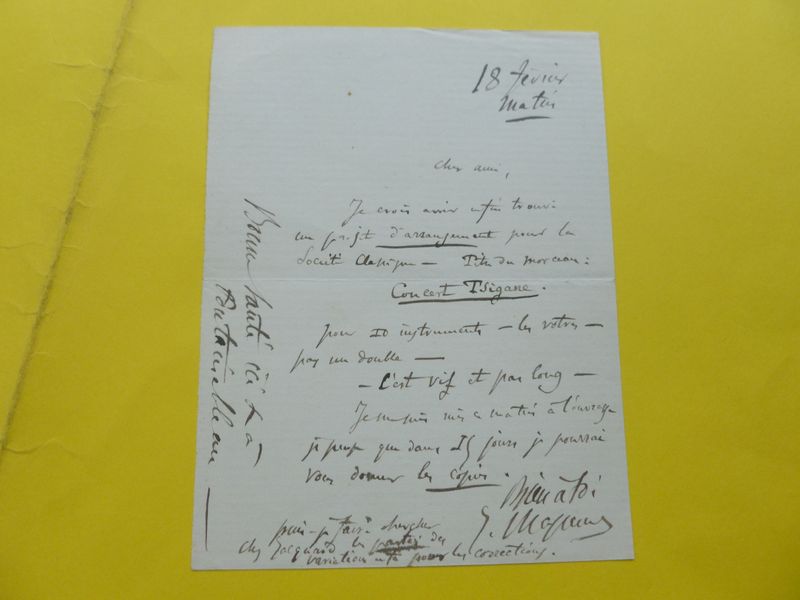 18 février
matin
Cher ami,
Je crois avoir enfin trouvé
un projet d'arrangement pour la
Société Classique — Titre du morceau :
Concert Tsigane.
pour 10 instruments — les votres —
pas un double —
— C'est vif et pas long —
Je me suis mis ce matin à l'ouvrage
je pense que dans 15 jours je pourrai
vous donner les copies.
Bien à toi
puis-je faire chercher
chez Jacquard les parties des
variations pour les corrections.
Bonne santé ici et à
Fontainebleau —